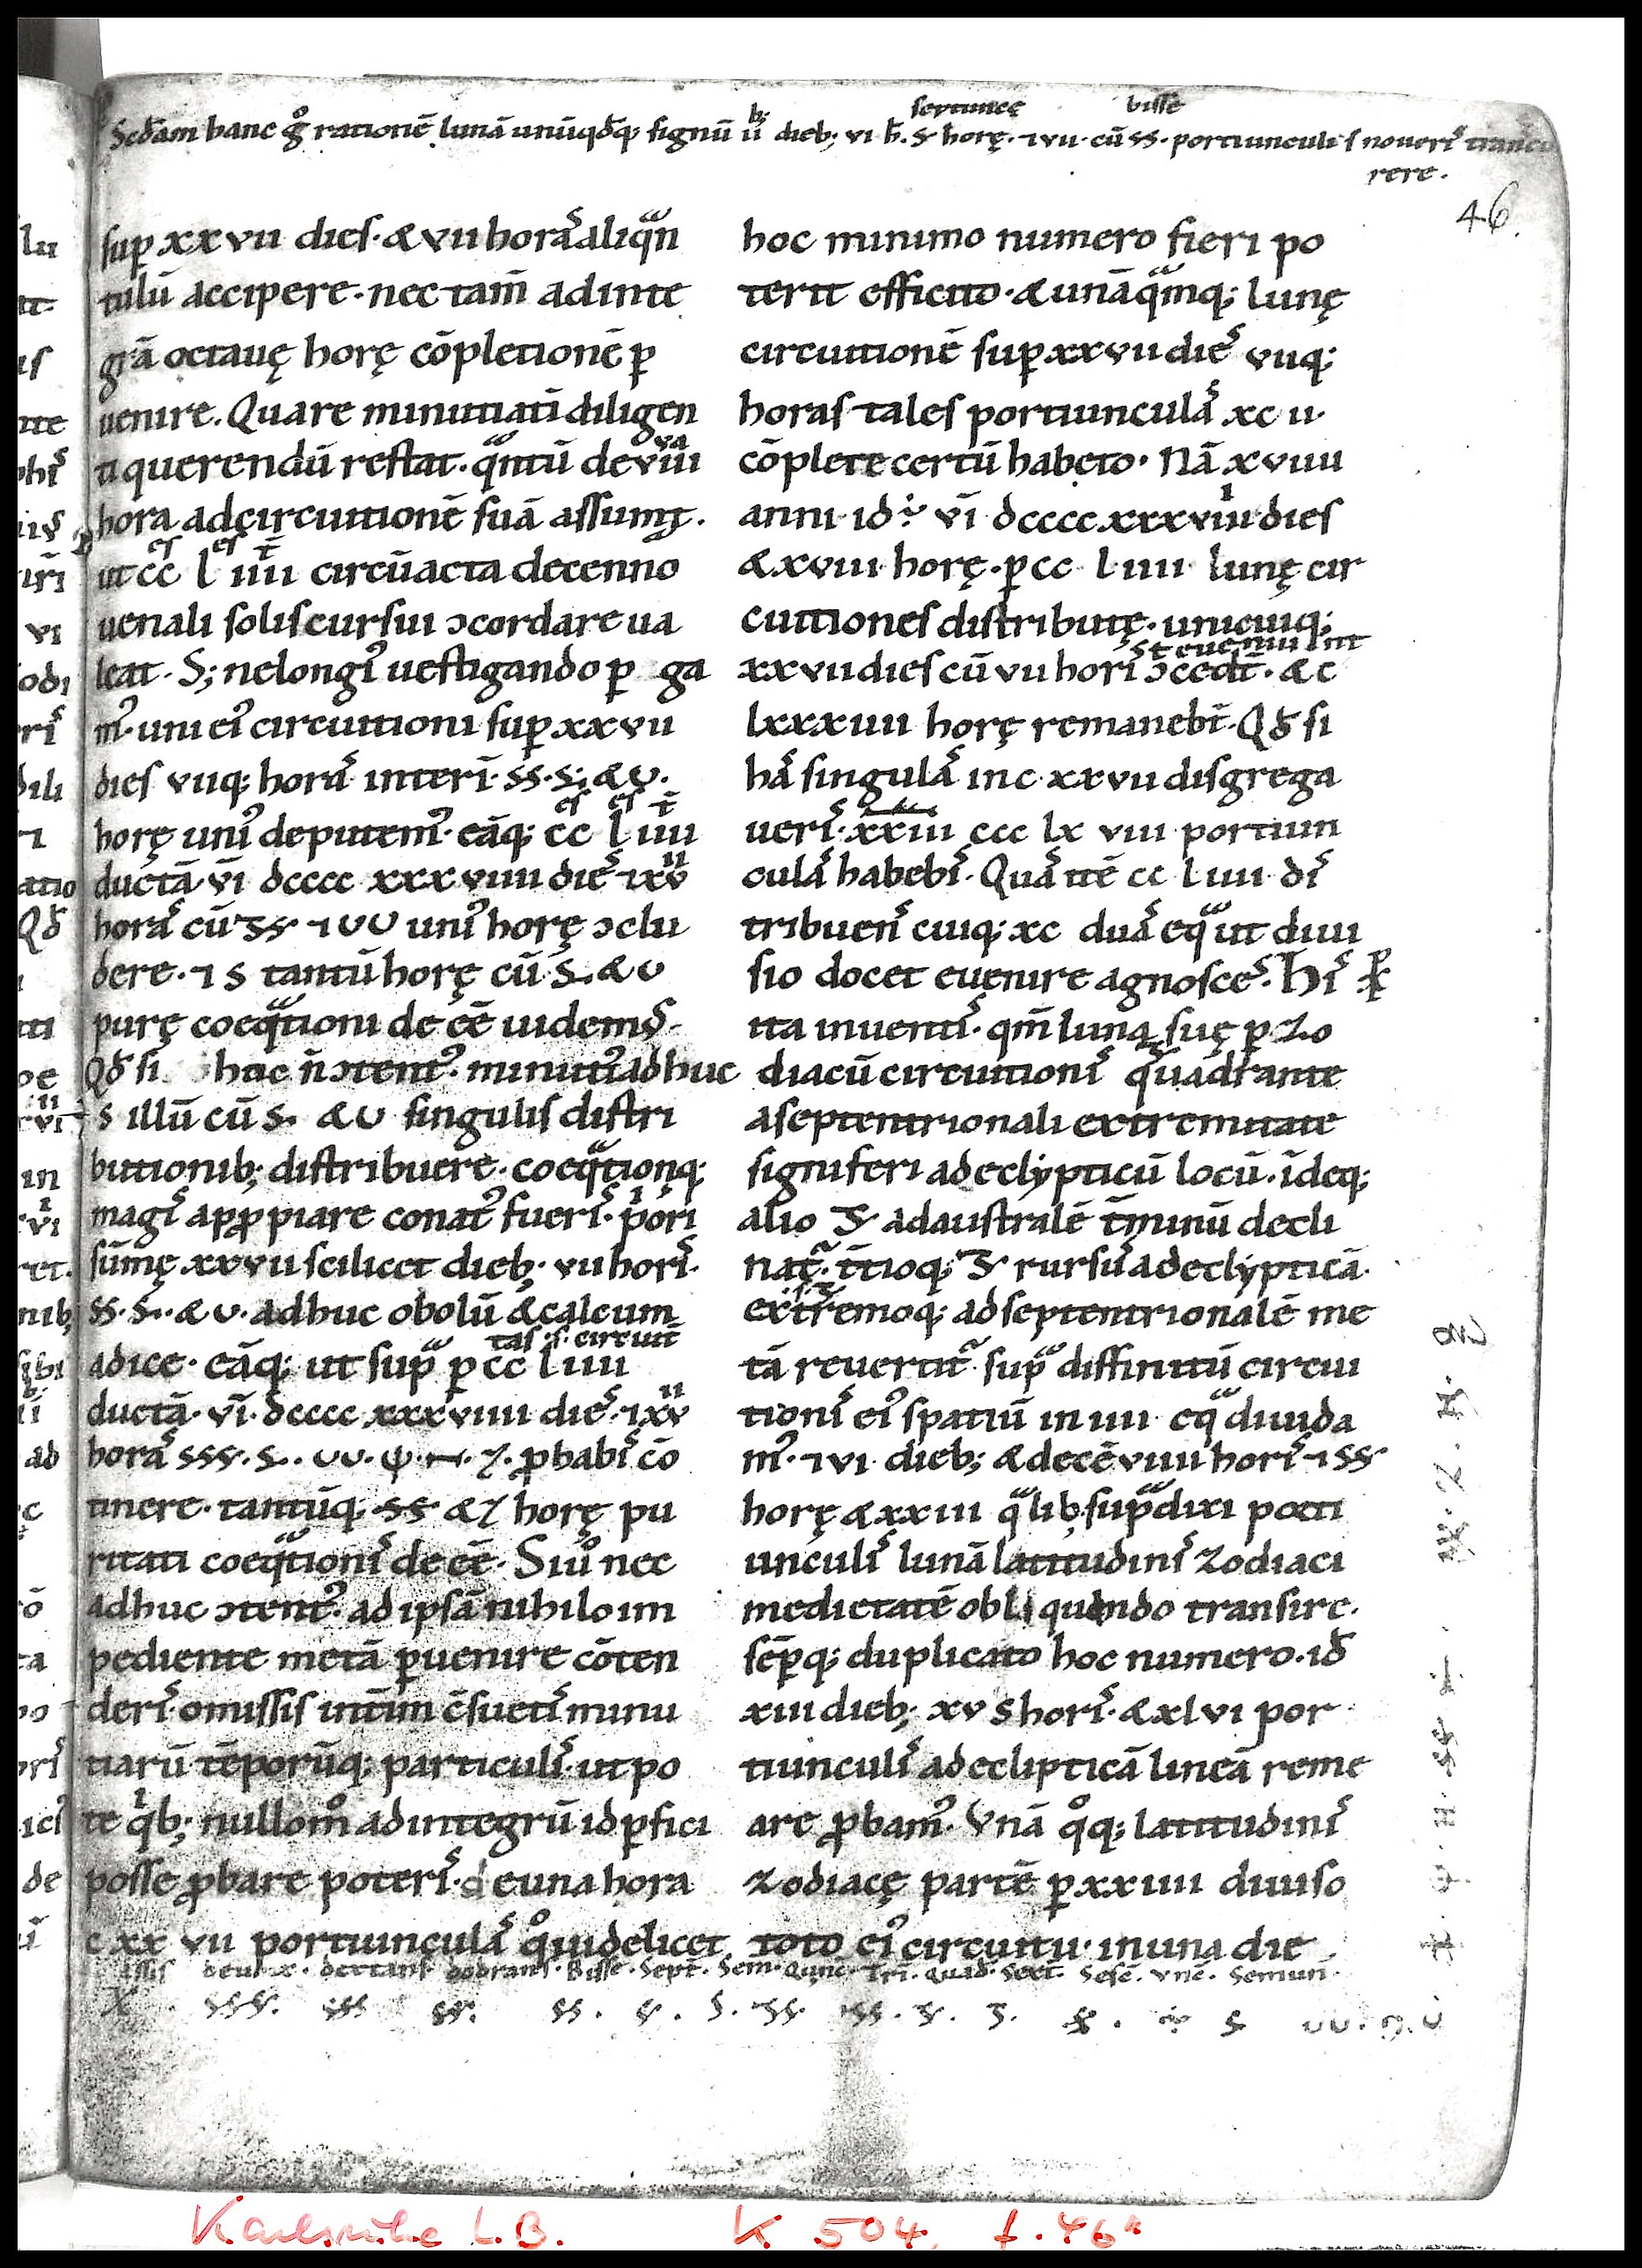 Scdam hanc gͦ rationē lunā unūqdq; signū ii dieb; vi h̄. S horę. ⁊ vii cū SS. portiunculis noueri᷒ trancur
septuncę bisse
rere.
46.
sup xxvii dies. & vii hora᷒ aliqᷓn
tulū accipere. nec tam̄ ad inte
grā octauę horę cōpletionē ꝑ
uenire. Quare minutiati diligen
ti querendū restat. qᷓntū de viiii
hora ad circuitionē suā assumt.
ut cc l iiii circūacta decenno
uenali solis cursui ɔcordare ua
leat. S; ne longi᷒ uestigando ꝑ ga
m᷒. uni ei᷒ circuitioni sup xxvii
dies viiq; hora᷒ interi. SS. S. & U.
horę uni᷒ deputem᷒. eāq; cc l iiii
ductā vī dcccc xxxviiii die᷒ ⁊ xv
hora᷒ cū SS ⁊ UU uni᷒ horę ɔclu
dere. ⁊ S tantū horę cū S. & U
purę coeqᷓtioni deēē uidem᷒.
Qđ si huc n̄ ɔtent᷒. minuti᷒ adhuc
S illū cū S. & U singulis distri
butionib; distribuere. coeqᷓtionq;
magi᷒ appꝓpiare conat᷒ fueri᷒. pͥori
sūmę xxvii scilicet dieb; vii hori᷒.
SS. S. & U. adhuc obolū & calcum
adice. eāq; ut supᷓ ꝑ cc l iiii
tas s. circuit
ductā. vī. dcccc xxxviiii die᷒. ⁊ xv
hora᷒ SSS. S.. UU. ψ. H. Z. ꝓbabi᷒ cō
tinere. tantūq; SS & Z horę pu
ritati coeqᷓtioni᷒ deēē. Siuͦ nec
adhuc ɔtent᷒. ad ipsā nihilo im
pediente metā ꝑuenire cōten
deri᷒. omissis int̄im c̄sueti᷒ minu
tiarū tēporūq; particuli᷒. ut po
te qͥb; nullomͦ ad integrū id ꝑfici
posse ꝓbare poteri᷒. de una hora
c xx vii portiuncula᷒ qͦ uidelicet
hoc minimo numero fieri po
terit efficito. & unāqᷓmq; lunę
circuitionē sup xxvii die᷒ viiq;
horas tales portiuncula᷒ xc ii.
cōplete certū habeto. Nā xviiii
anni. id ÷ vī dcccc.xxxviiii dies
& xviii horę. ꝑ cc liiii lunę cir
cuitiones distributę. unicuiq;
xxvii dies cū vii hori᷒ ɔcedt̄. & c
lxxxiiii horę remanebt̄. Qđ si
ha᷒ singula᷒ in c.xxvii disgrega
ueri᷒. xxiii ccc lx viii portiun
cula᷒ habebi᷒. Qua᷒ itē cc liiii di᷒
tribuen᷒ cuiq; xc dua᷒ eqᷓ ut diui
sio docet euenire agnosce᷒. Hi᷒
ita inuenti᷒. qm̄ lunā suę ꝑ zo
diacū circuitioni᷒ quadrante
a septentrionali extremitate
signiferi ad eclypticū locū. īdeq;
alio S ad australē t̄minū decli
nat᷒. t̄tioq; S rursū ad eclypticā.
extremoq; ad septentrionalē me
tā reuertit᷒ supᷓ diffinitū circui
tioni᷒ ei᷒ spatiū in iiii eqᷓ diuida
m᷒. ⁊ vi dieb; & decē viiii hori᷒ ⁊ SS
horę & xxiii qᷓlib; supᷓdixi porti
unculi᷒ lunā latitudini᷒ zodiaci
medietatē obliquando transire.
sēꝑq; duplicato hoc numero. iđ
xiii dieb; xv S hori᷒. & xlvi por
tiunculi᷒ ad eclipticā lineā reme
are ꝓbam᷒. Vnā qͦq; latitudini᷒
zodiacę partē ꝑ xxiiii diuiso
toto ei᷒ circuitu. in una die
Assis deunx. dextans dodrans. Bisse. Sept̄. Sem. Qunc. Tri. Quad. Sext. Sesē. Vnē. Semun.
Karlsruhe L.B. K 504, f. 46r